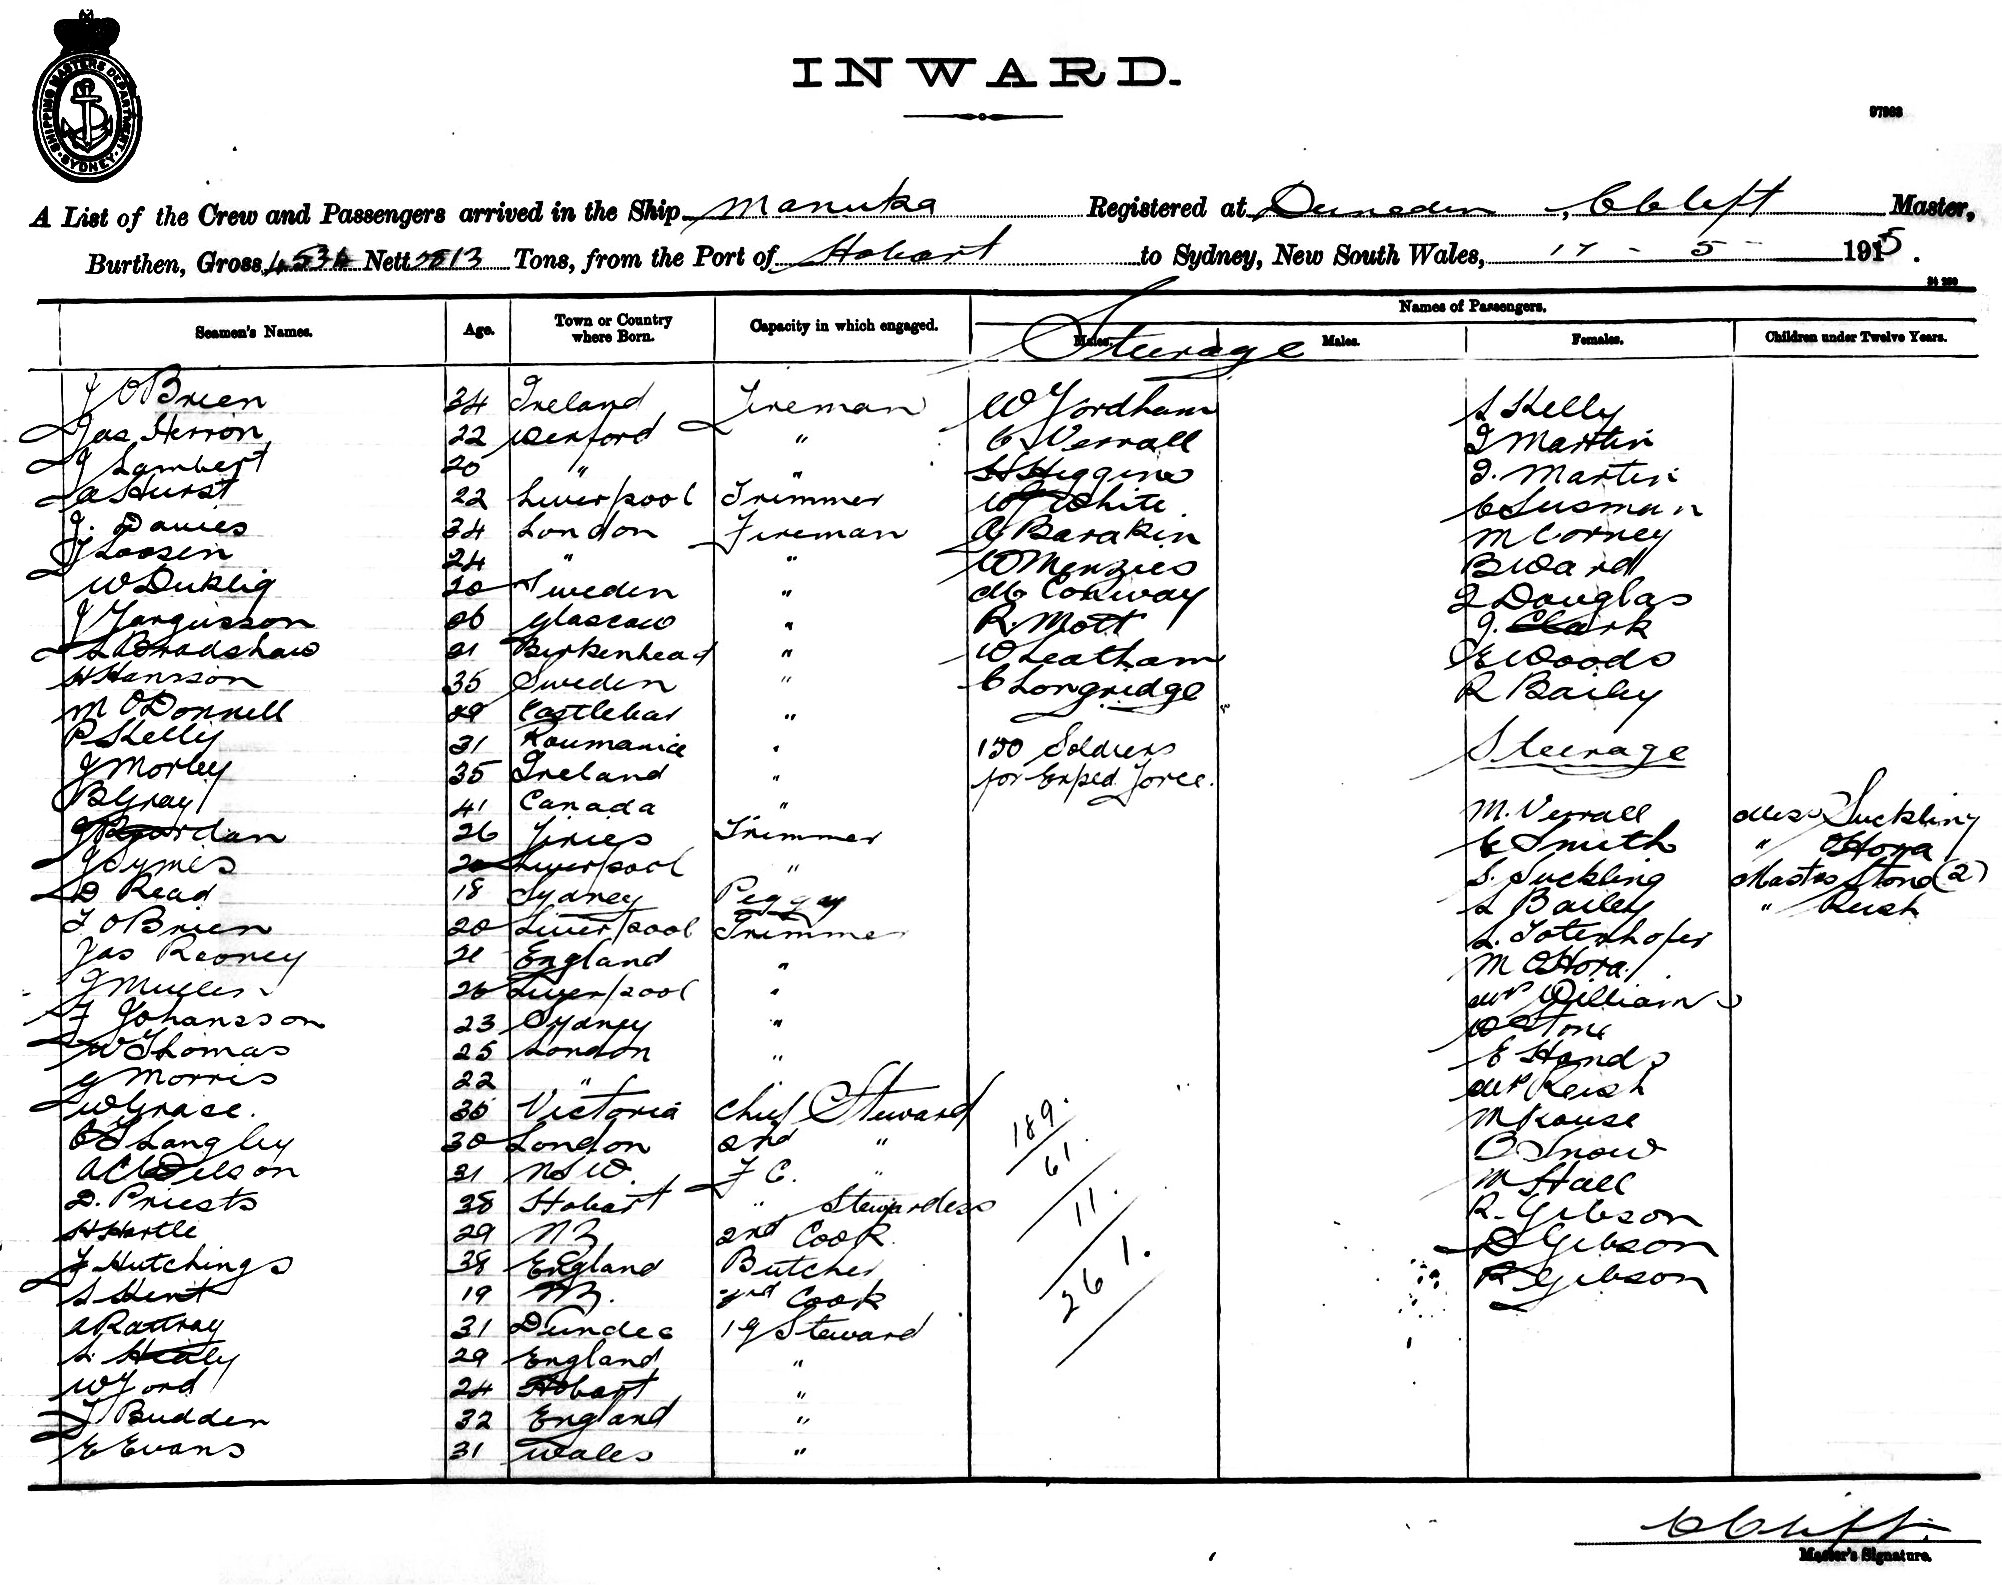 SHIPPING MASTERS DEPARTMENT · SYDNEY ·
INWARD.
97963
A List of the Crew and Passengers arrived in the Ship Manuka Registered at Dunedin, C C Clift Master,
Burthen, Gross 4534 Nett 2513 Tons, from the Port of Hobart to Sydney, New South Wales, 17 - 5 - 1915.
Seamen's Names. Age. Town or Country where Born. Capacity in which engaged. Names of Passengers.
Males. Males. Females. Children under Twelve Years.
Steerage
J O'Brien 34 Ireland Fireman
Jas Herron 22 Wexford "
J Lambert 20 " "
A Hurst 22 Liverpool Trimmer
J. Davies 34 London Fireman
24 " "
W 20 Sweden "
J Fargusson 36 Glascow "
L Bradshaw 21 Birkenhead "
H Hansson 35 Sweden "
M O'Donnell 29 Castlebar "
P Kelly 31 Roumanice "
J Morley 35 Ireland "
B Gray 41 Canada "
26 Trimmer
J Symes 20 Liverpool "
D Read 18 Sydney Peggy
J O'Brien 20 Liverpool Trimmer
Jas Rooney 21 England "
J Mullen 26 Liverpool "
F Johansson 23 Sydney "
W Thomas 25 London "
G Morris 22 " "
W Grace. 35 Victoria Chief Steward
Langley 30 London 2nd "
A C Wilson 31 NSW. F C. "
D. Priests 38 Hobart " Stewardess
H Hartle 29 NZ 2nd Cook
F Hutchings 38 England Butcher
S Kent 19 NZ. 3rd Cook
A Rattray 31 Dundee 19 Steward
S. Healy 29 England "
W Ford 24 Hobart "
J Budden 32 England "
E Evans 31 Wales "
W Fordham
C Verrall
H Higgins
W J White
A Barakin
W Menzies
Mc Conway
R. Mott
W Leatham
C Longridge
150 Soldiers
for Exped Force.
189.
61.
11.
261.
S Kelly
J Martin
J. Martin
C Susman
M Corney
B Ward
J Douglas
J. Clark
E Woods
R Bailey
Steerage
M. Verrall
E Smith
S. Suckling
L Bailey
L. Totenhofer
M O'Hora
Mrs Williams
W Stone
E Hands
Mrs Reish
M Rouse
B Snow
M Hall
R. Gibson
D Gibson
R Gibson
Miss Suckling
" O'Hora
Mastrs Stone (2)
" Reish
C C Clift
Master's Signature.